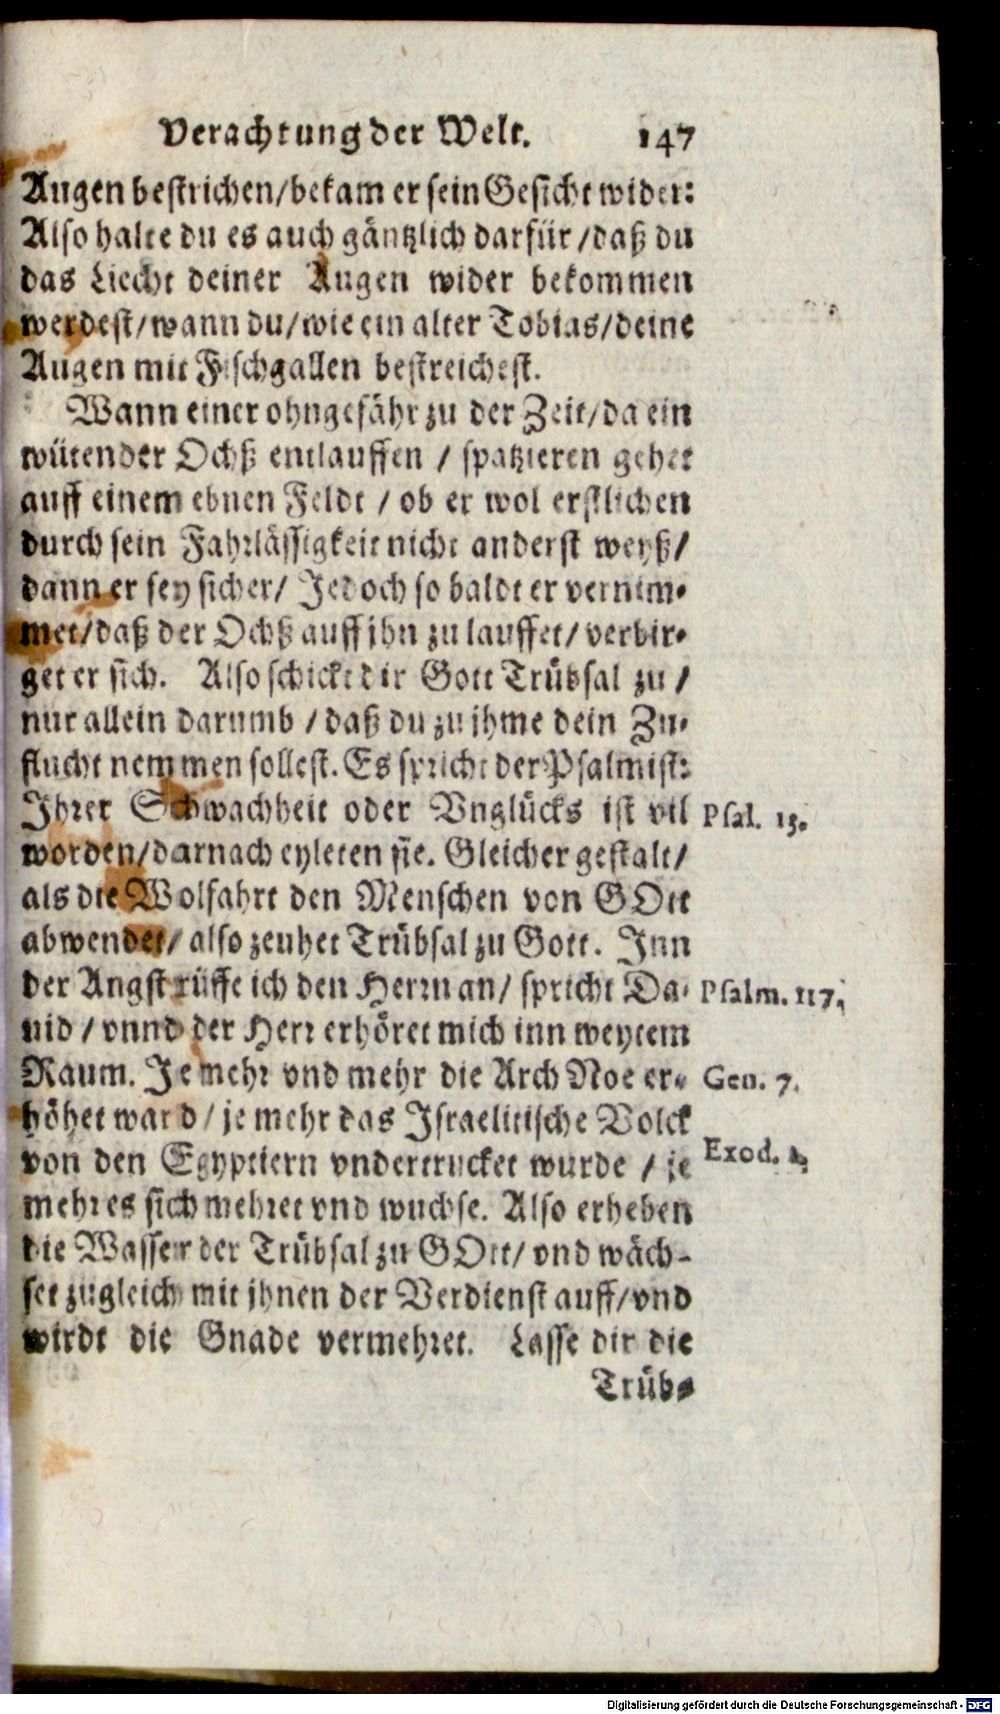 Verachtung der Welt. 147
Augen bestrichen/bekam er sein Gesicht wider:
Also halte du es auch gäntzlich darfür/daß du
das Liecht deiner Augen wider bekommen
werdest/wann du/wie ein alter Tobias/deine
Augen mit Fischgallen bestreichest.
Wann einer ohngefähr zu der Zeit/da ein
wütender Ochß entlauffen / spatzieren gehet
auff einem ebnen Feldt / ob er wol erstlichen
durch sein Fahrlässigkeit nicht anderst weyß/
dann er sey sicher/ Jedoch so baldt er vernim-
met/daß der Ochß auff jhn zu lauffet/verbir-
get er sich. Also schickt dir Gott Trübsal zu /
nur allein darumb / daß du zu jhme dein Zu-
flucht nemmen sollest. Es spricht der Psalmist:
Jhrer Schwachheit oder Vnglücks ist vil Psal. 15.
worden/darnach eyleten sie. Gleicher gestalt/
als die Wolfahrt den Menschen von GOtt
abwendet/ also zeuhet Trübsal zu Gott. Inn
der Angst rüffe ich den Herrn an/ spricht Da- Psalm. 117.
uid / vnnd der Herr erhöret mich inn weytem
Raum. Je mehr vnd mehr die Arch Noe er- Gen. 7.
höhet ward/ je mehr das Israelitische Volck
von den Egyptiern vndertrucket wurde / je Exod. 1.
mehr es sich mehret vnd wuchse. Also erheben
die Wasser der Trübsal zu GOtt/ vnd wäch-
set zugleich mit jhnen der Verdienst auff/vnd
wirdt die Gnade vermehret. Lasse dir die
Trüb-
Digitalisierung gefördert durch die Deutsche Forschungsgemeinschaft - DFG